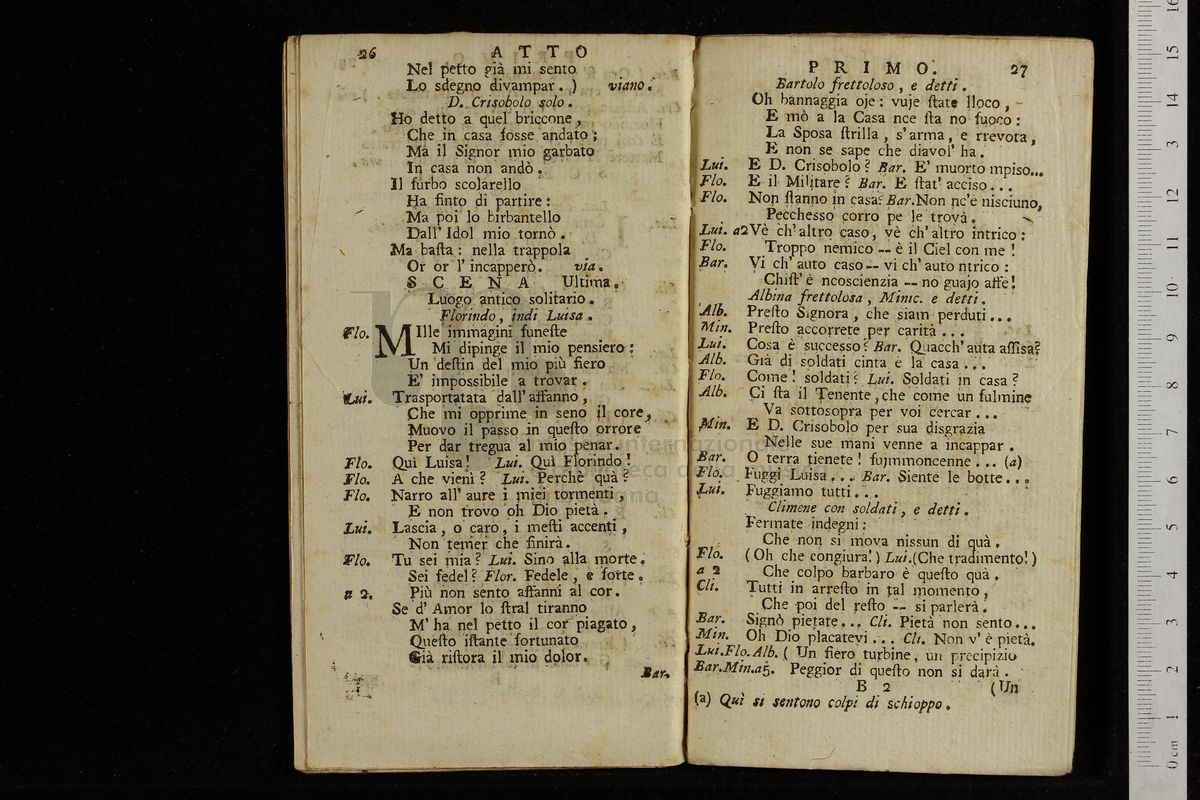 26 ATTO
Nel petto già mi sento
Lo sdegno divampar. ) viano.
D. Crisobolo solo.
Ho detto a quel briccone,
Che in casa fosse andato;
Ma il Signor mio garbato
In casa non andò.
Il furbo scolarello
Ha finto di partire:
Ma poi lo birbantello
Dall' Idol mio tornò.
Ma baſta: nella trappola
Or or l' incapperò. via.
SCENA Ultima.
Luogo antico solitario.
Florindo, indi Luisa.
Flo. MIlle immagini funeſte
Mi dipinge il mio pensiero:
Un deſtin del mio più fiero
E' impossibile a trovar.
Lui. Trasportatata dall' affanno,
Che mi opprime in seno il core,
Muovo il passo in queſto orrore
Per dar tregua al mio penar.
Flo. Quì Luisa! Lui. Quì Florindo!
Flo. A che vieni? Lui. Perchè quà?
Flo. Narro all' aure i miei tormenti,
E non trovo oh Dio pietà.
Lui. Lascia, o caro, i meſti accenti,
Non temer che finirà.
Flo. Tu sei mia? Lui. Sino alla morte.
Sei fedel? Flor. Fedele, e forte.
a 2. Più non sento affanni al cor.
Se d' Amor lo ſtral tiranno
M' ha nel petto il cor piagato,
Queſto iſtante fortunato
Già riſtora il mio dolor.
Bar.
PRIMO. 27
Bartolo frettoloso, e detti.
Oh bannaggia oje: vuje ſtate lloco,
E mò a la Casa nce ſta no fuoco:
La Sposa ſtrilla, s' arma, e rrevota,
E non se sape che diavol' ha.
Lui. E D. Crisobolo? Bar. E' muorto mpiso...
Flo. E il Militare? Bar. E ſtat' acciso...
Flo. Non ſtanno in casa? Bar. Non nc'è nisciuno,
Pecchesso corro pe le trovà.
Lui. a2 Vè ch' altro caso, vè ch' altro intrico:
Flo. Troppo nemico -- è il Ciel con me!
Bar. Vi ch' auto caso -- vi ch' auto ntrico:
Chiſt' è ncoscienzia -- no guajo affè!
Albina frettolosa, Minic. e detti.
Alb. Preſto Signora, che siam perduti...
Min. Preſto accorrete per carità...
Lui. Cosa è successo? Bar. Quacch' auta affisa?
Alb. Già di soldati cinta è la casa...
Flo. Come! soldati? Lui. Soldati in casa?
Alb. Ci ſta il Tenente, che come un fulmine
Va sottosopra per voi cercar...
Min. E D. Crisobolo per sua disgrazia
Nelle sue mani venne a incappar.
Bar. O terra tienete! fujmmoncenne... (a)
Flo. Fuggi Luisa... Bar. Siente le botte...
Lui. Fuggiamo tutti...
Climene con soldati, e detti.
Fermate indegni:
Che non si mova nissun di quà.
Flo. (Oh che congiura!) Lui. (Che tradimento!)
a 2 Che colpo barbaro è queſto quà.
Cli. Tutti in arreſto in tal momento,
Che poi del reſto -- si parlerà.
Bar. Signò pietate... Cli. Pietà non sento...
Min. Oh Dio placatevi... Cli. Non v' è pietà.
Lui. Flo. Alb. ( Un fiero turbine, un precipizio
Bar. Min. a5. Peggior di queſto non si darà.
B 2 (Un
(a) Quì si sentono colpi di schioppo.